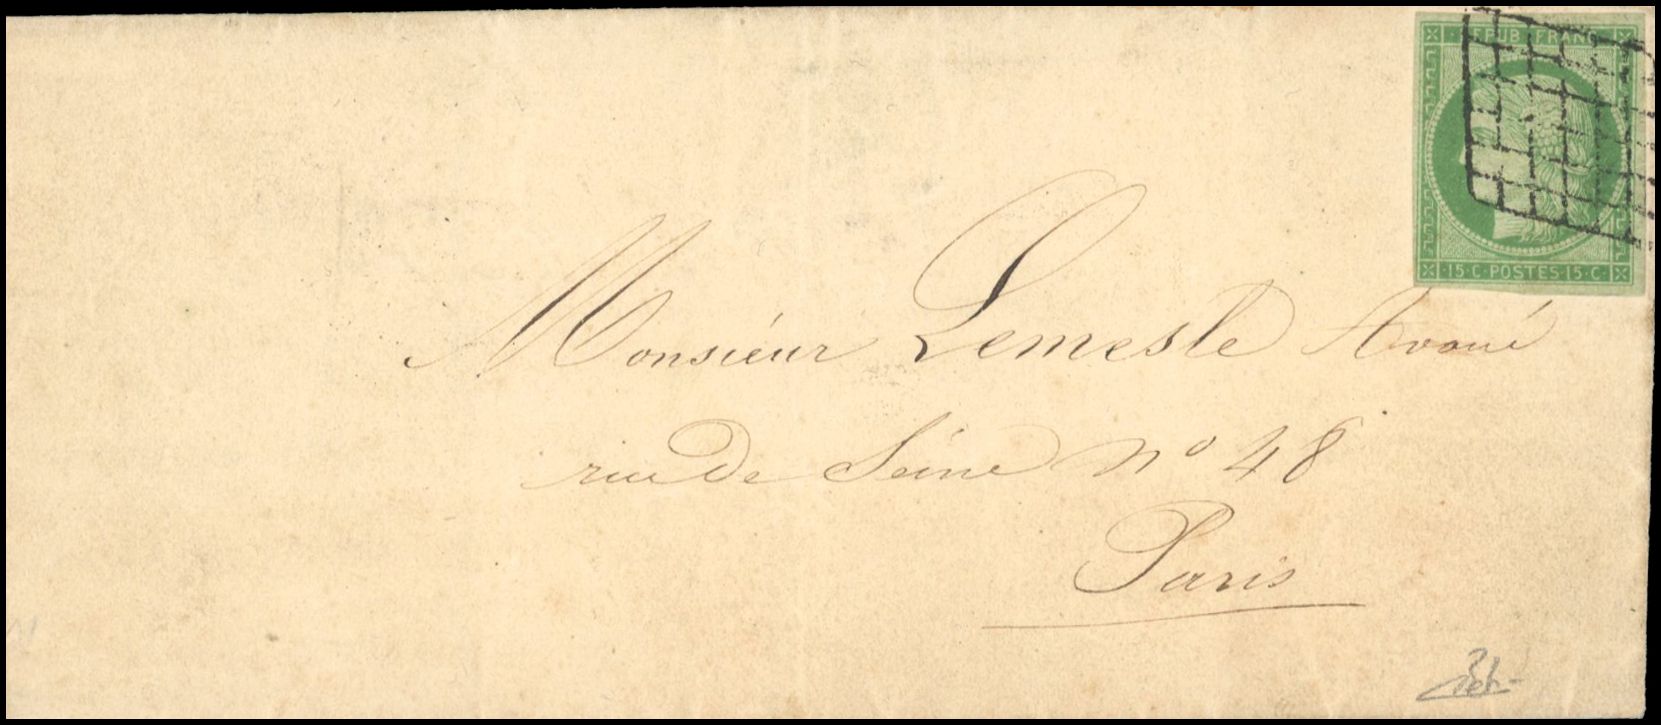 REPUB FRANC
15·C·POSTES·15·C
Monsieur Lemesle Avoué
rue de Seine N° 48
Paris